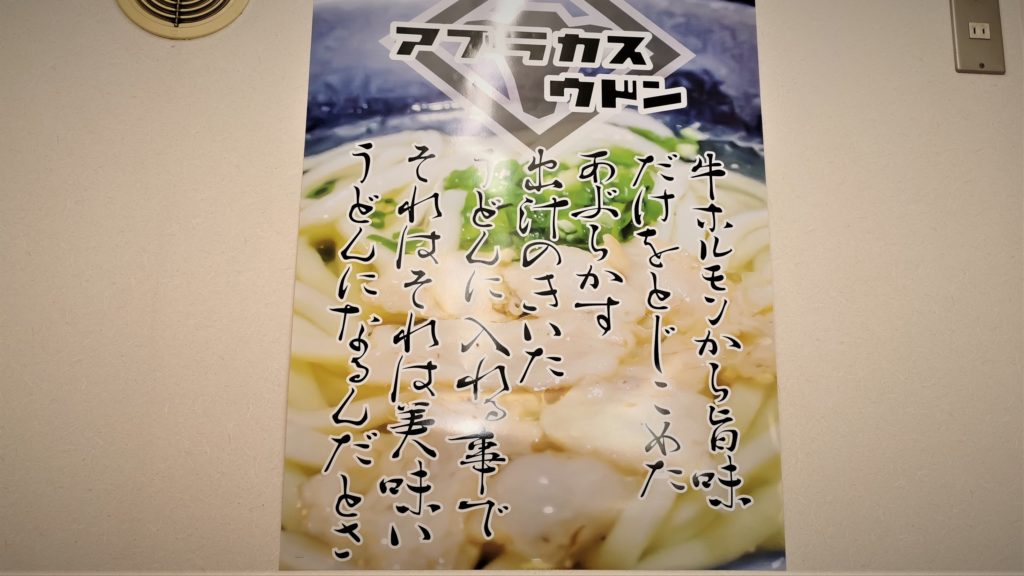 アブラカス
ウドン
牛ホルモンから旨味
だけをとじこめた
あぶらかす
出汁のきいた
うどんに入れる事で
それはそれは美味い
うどんになるんだとさ